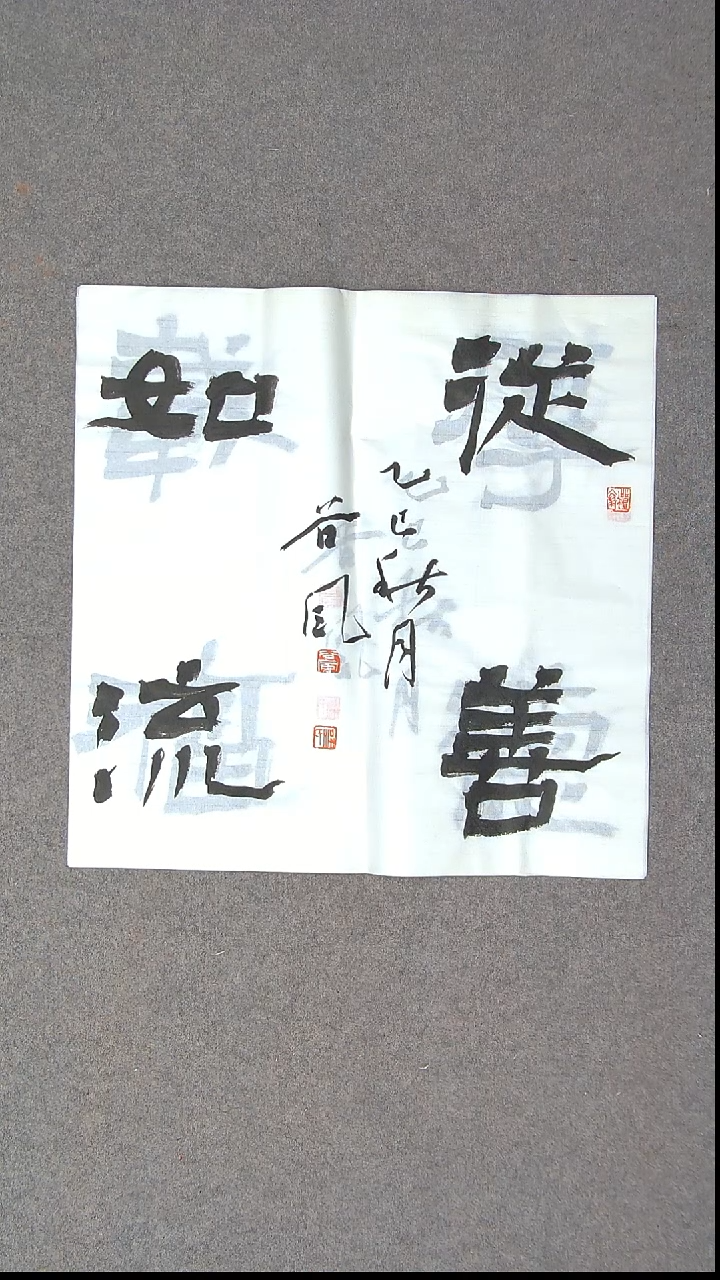 從善
如流
乙巳秋月
谷风